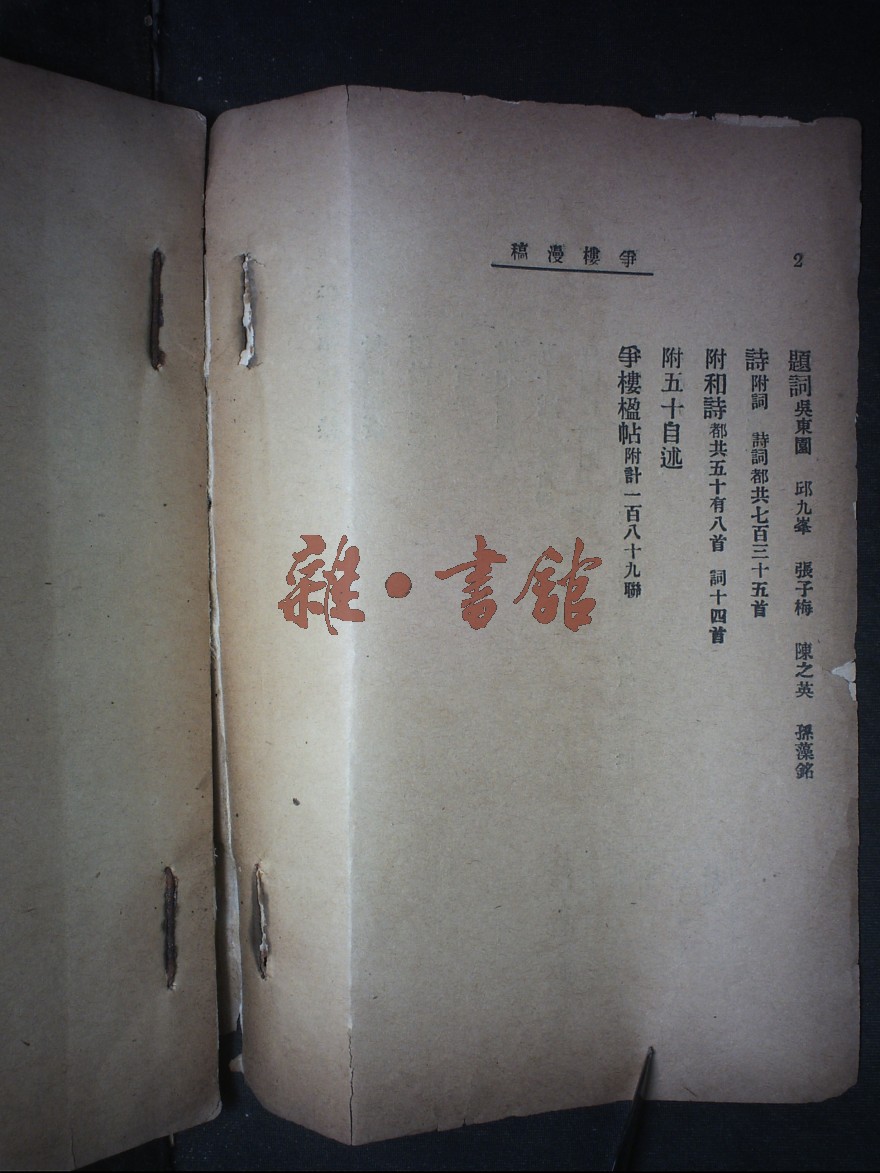 2
爭樓漫稿
題詞 吳東園 邱九峯 張子梅 陳之英 孫藻銘
詩 附詞 詩詞都共七百三十五首
附和詩 都共五十有八首 詞十四首
附五十自述
爭樓楹帖 附計一百八十九聯
雜·書館